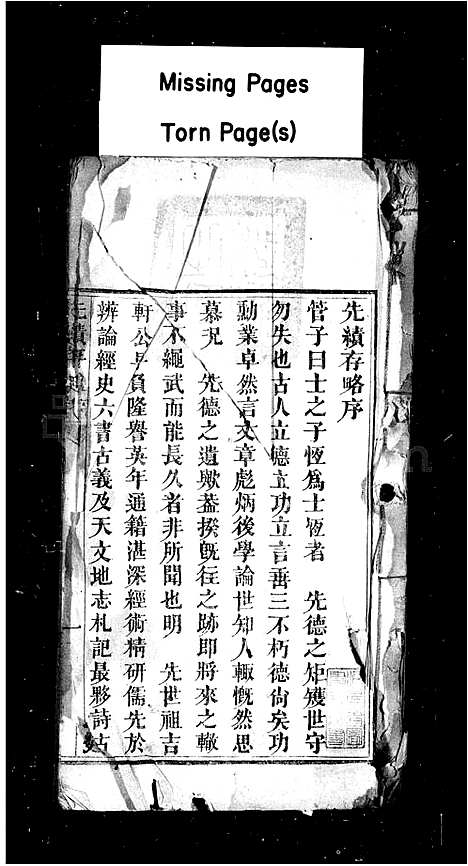 Missing Pages
Torn Page(s)
先績存略序
管子曰士之子恆爲士恆者　先德之矩矱世守
勿失也古人立德立功立言垂三不朽德尙矣功
勳業卓然言文章彪炳後學論世知人輒慨然思
慕况　先德之遺徽葢揆旣往之跡即將來之轍
事不繩武而能長久者非所聞也明　先世祖吉
軒公早負隆譽英年通籍湛深經術精硏儒先於
辨論經史六書古義及天文地志札記最夥詩古